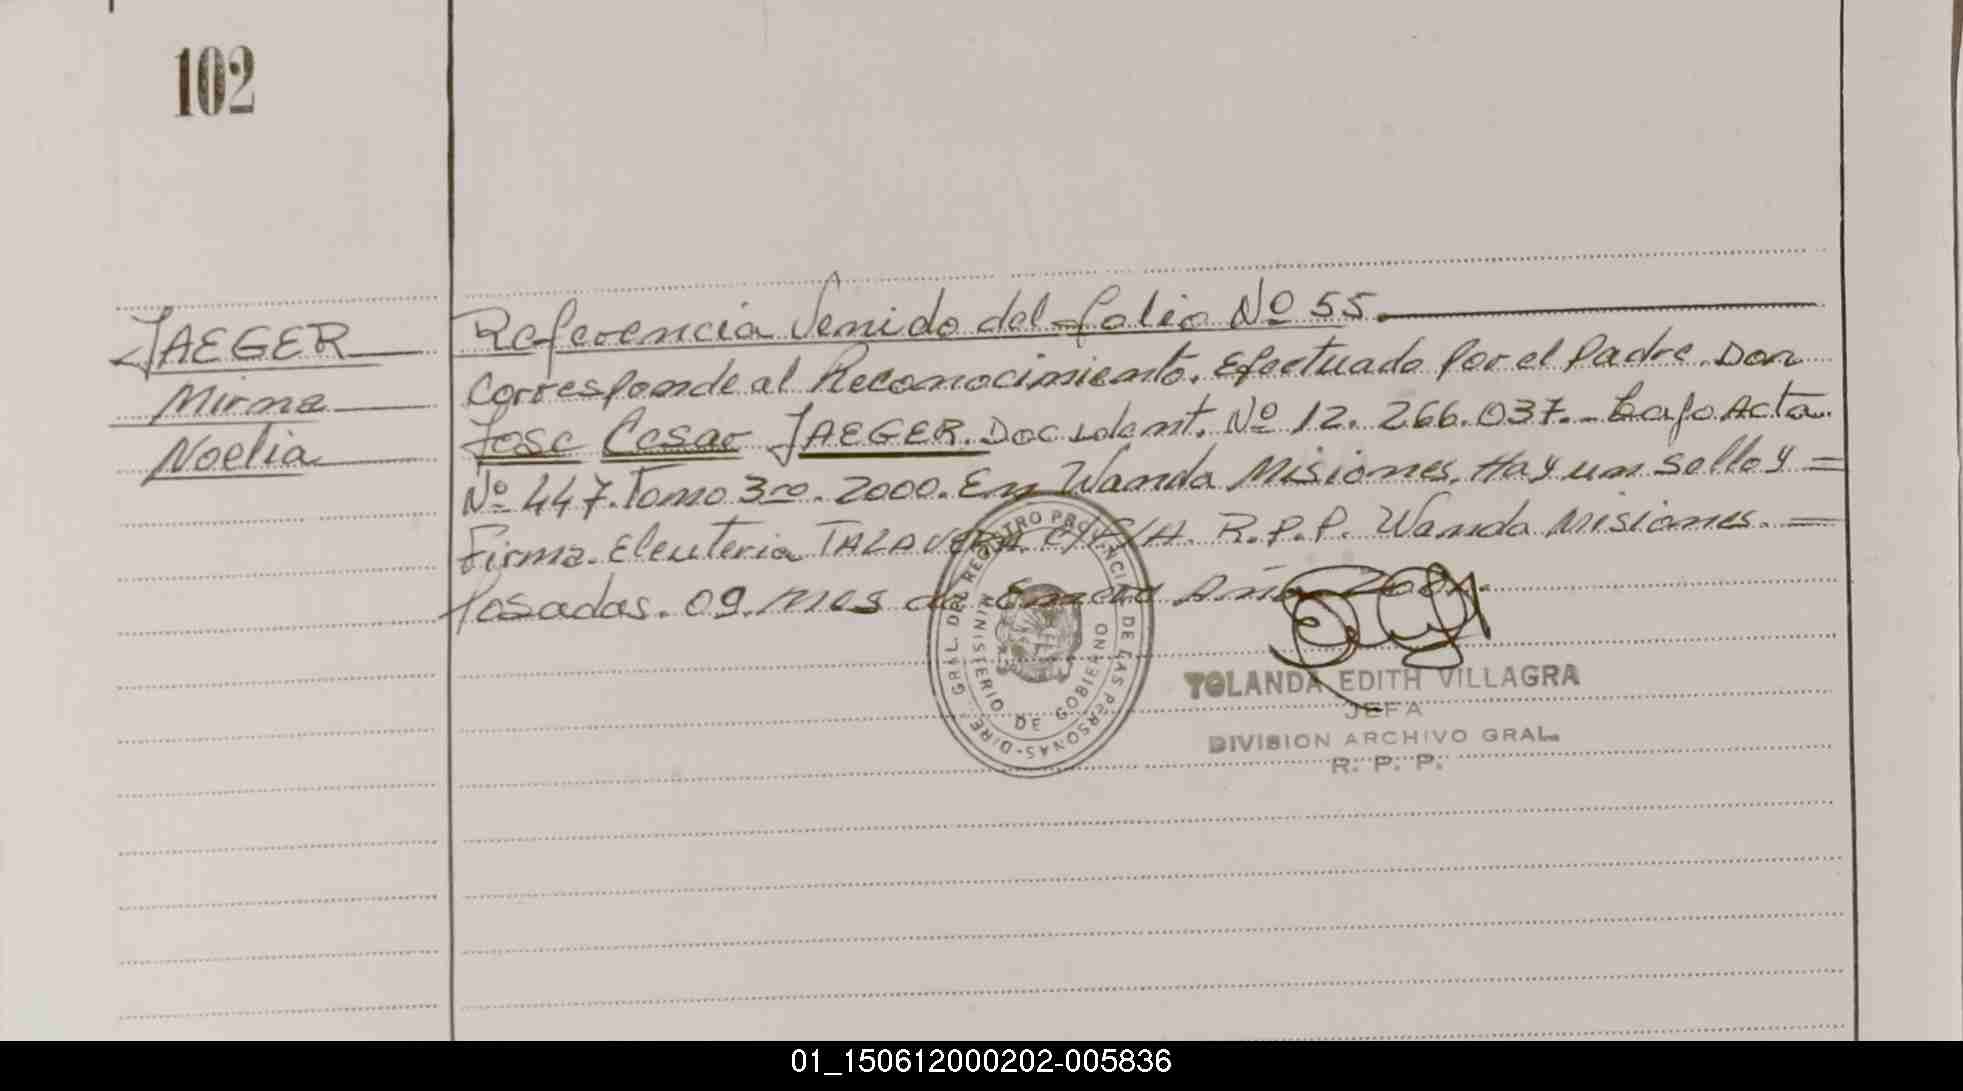 102
JAEGER
Mirna
Noelia
Referencia Venido del folio Nº 55.
Corresponde al Reconocimiento. Efectuado por el Padre. Don
Jose Cesar JAEGER. Doc ident. Nº 12. 266.037.- bajo Acta.
Nº 447. Tomo 3ro. 2000. En Wanda Misiones. Hay un sello y =
Firma. Eleuteria TALAVERA. E/F/A. R.P.P. Wanda Misiones. =
Posadas. 09. Mes de Enero Año
DIRE. GRAL. DEL REGISTRO PROVINCIAL DE LAS PERSONAS-
MINISTERIO DE GOBIERNO
YOLANDA EDITH VILLAGRA
JEFA
DIVISION ARCHIVO GRAL.
R. P. P.
01_150612000202-005836